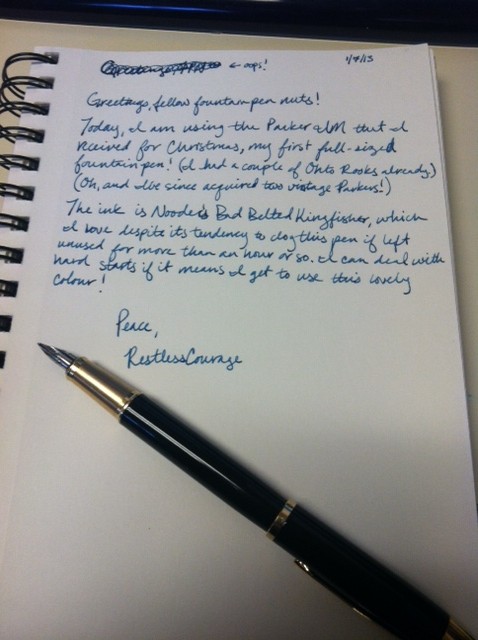 ← oops!
1/7/13
Greetings, fellow fountain pen nuts!
Today, I am using the Parker IM that I
received for Christmas, my first full-sized
fountain pen! (I had a couple of Ohto Rooks already.)
(Oh, and I've since acquired two vintage Parkers!)
The ink is Noodler's Bad Belted Kingfisher, which
I love despite its tendency to clog this pen if left
unused for more than an hour or so. I can deal with
hard starts if it means I get to use this lovely
colour!
Peace,
RestlessCourage